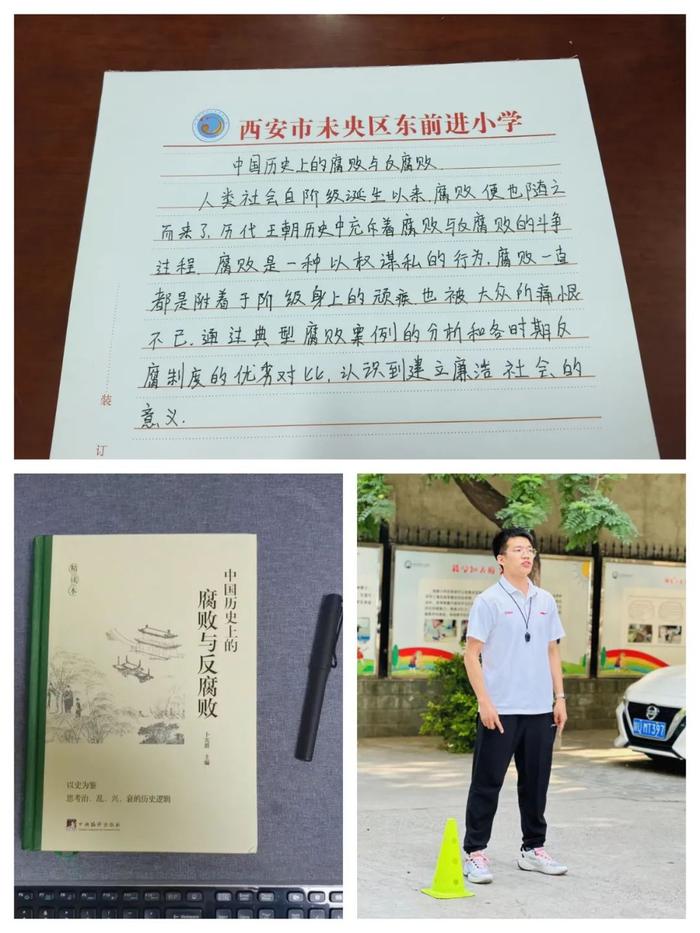 西安市未央区东前进小学
中国历史上的腐败与反腐败.
人类社会自阶级诞生以来,腐败便也随之
而来了.历代王朝历史中充斥着腐败与反腐败的斗争
过程.腐败是一种以权谋私的行为.腐败一直
都是附着于阶级身上的顽疾也被大众所痛恨
不已.通过典型腐败案例的分析和各时期反
腐制度的优劣对比,认识到建立廉洁社会的
意义.
装
订
精读本
中国历史上的
腐败与反腐败
卜宪群 主编
以史为鉴
思考治、乱、兴、衰的历史逻辑
中央编译出版社
MT397